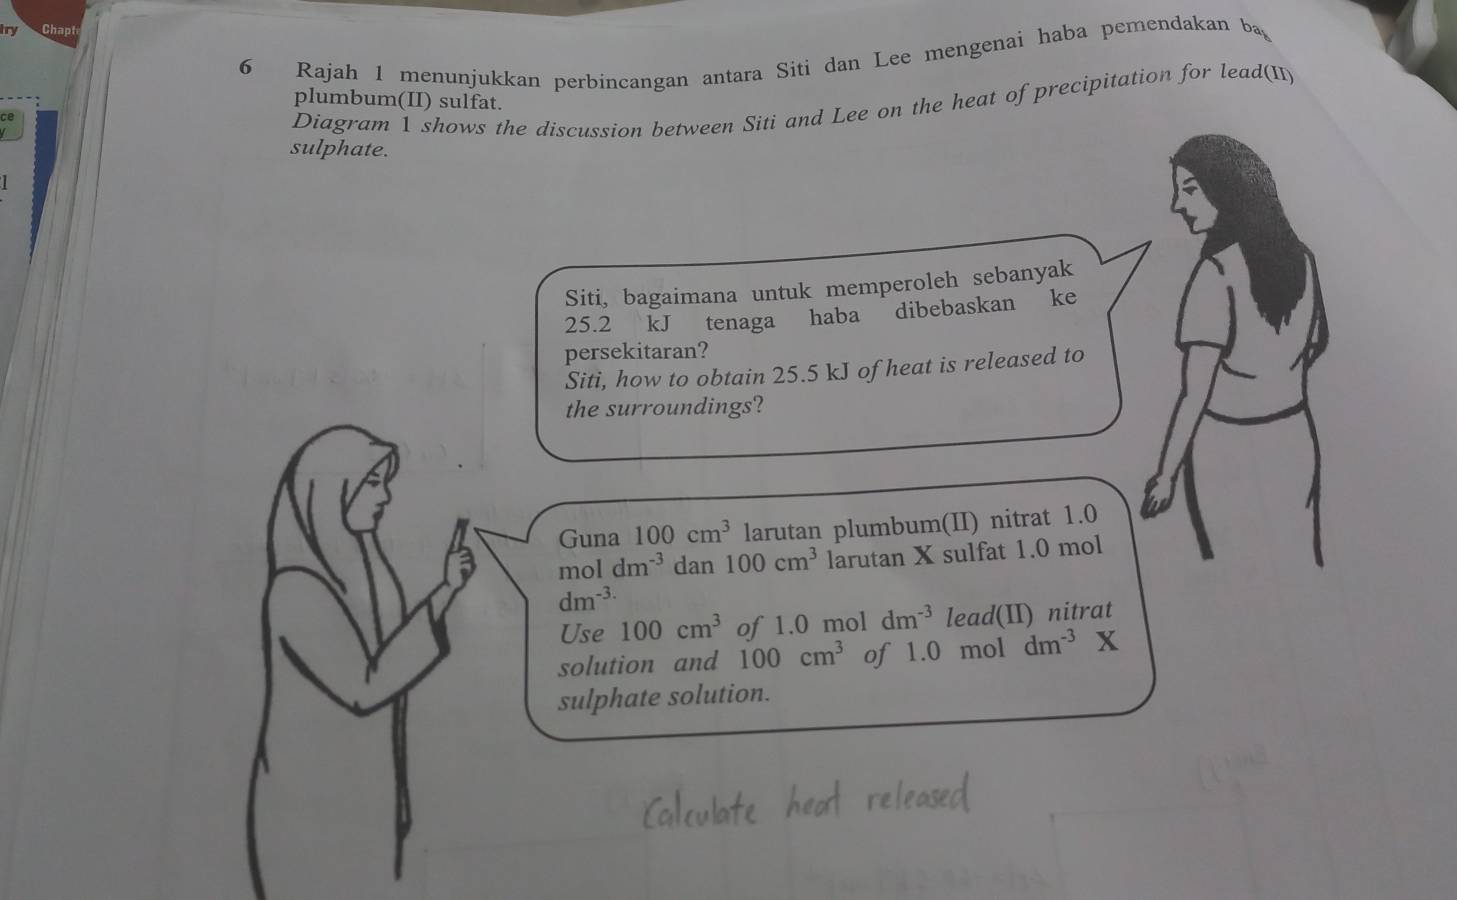 Chapt
ce
6 Rajah 1 menunjukkan perbincangan antara Siti dan Lee mengenai haba pemendakan
plumbum(II) sulfat.
Diagram 1 shows the discussion between Siti and Lee on the heat of precipitation for lead(II)
sulphate.
Siti, bagaimana untuk memperoleh sebanyak
25.2 kJ tenaga haba dibebaskan ke
persekitaran?
Siti, how to obtain 25.5 kJ of heat is released to
the surroundings?
Guna 100 cm³ larutan plumbum(II) nitrat 1.0
mol dm⁻³ dan 100 cm³ larutan X sulfat 1.0 mol
dm⁻³.
Use 100 cm³ of 1.0 mol dm⁻³ lead(II) nitrat
solution and 100 cm³ of 1.0 mol dm⁻³ X
sulphate solution.
Calculate heat released